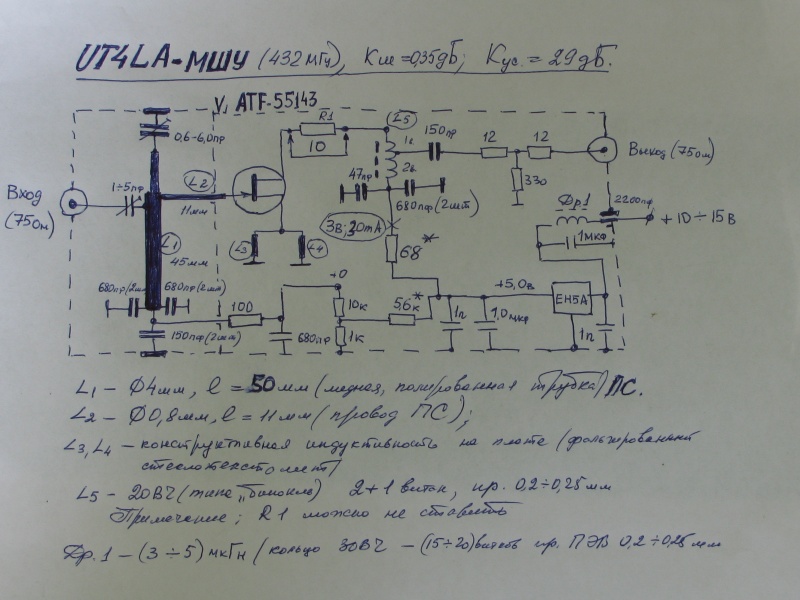 UT4LA-МШУ (432 мГц), Кш=0,35дБ; Кус.=29дБ.
V1 ATF-55143
0,6-6,0пф
R1
10
L5
150пф
12
12
Выход (75ом)
1в
2в
47пф
680пф (2шт)
330
Вход
(75ом)
1÷5пф
L2
11мм
L1
45мм
L3
L4
3В; 30mA
68*
Др1
2200пф
1мкф
+10÷15В
680пф(2шт)
680пф(2шт)
150пф(2шт)
100
680пф
+0
10к
1к
5,6к*
+5,0в
1п
1,0мкф
ЕН5А
1п
L1 – Ф4мм, l = 50мм (медная, полированная трубка) ПС.
L2 – Ф0,8мм, l = 11мм (провод ПС);
L3, L4 – конструктивная индуктивность на плате (фольгированный
стеклотекстолит)
L5 – 20ВЧ (типа „бинокль) 2+1 виток, пр. 0,2÷0,25мм
Примечание; R1 можно не ставить
Др.1 – (3÷5) мкГн (кольцо 30ВЧ – (15÷20) витков пр. ПЭВ 0,2÷0,25мм